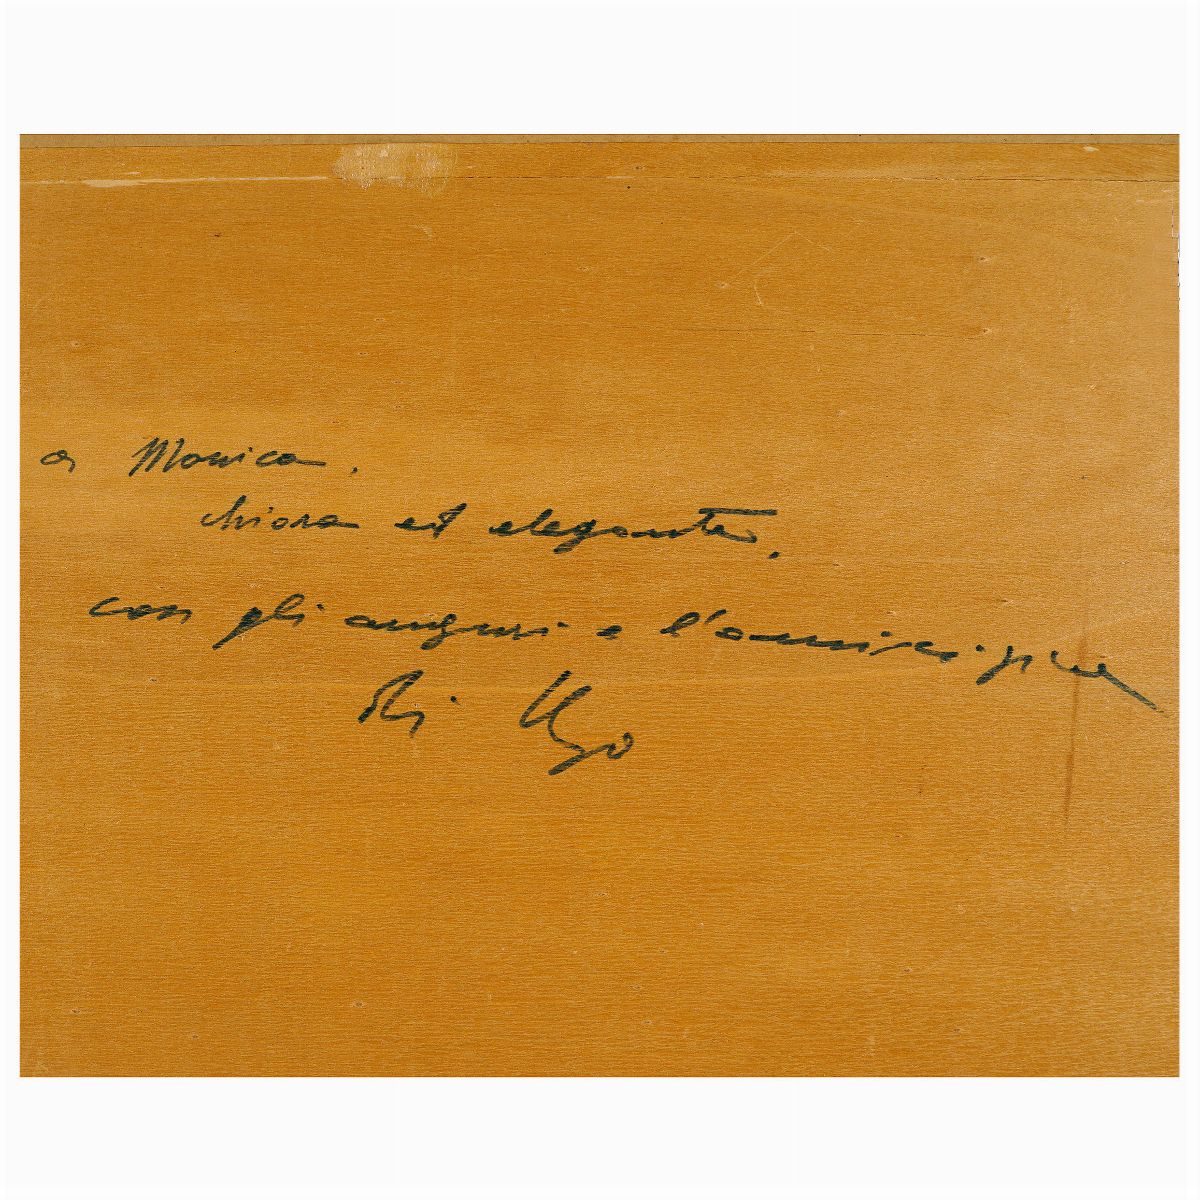 a Monica.
chiara ed elegante,
con gli auguri e l'amicizia
di Ugo